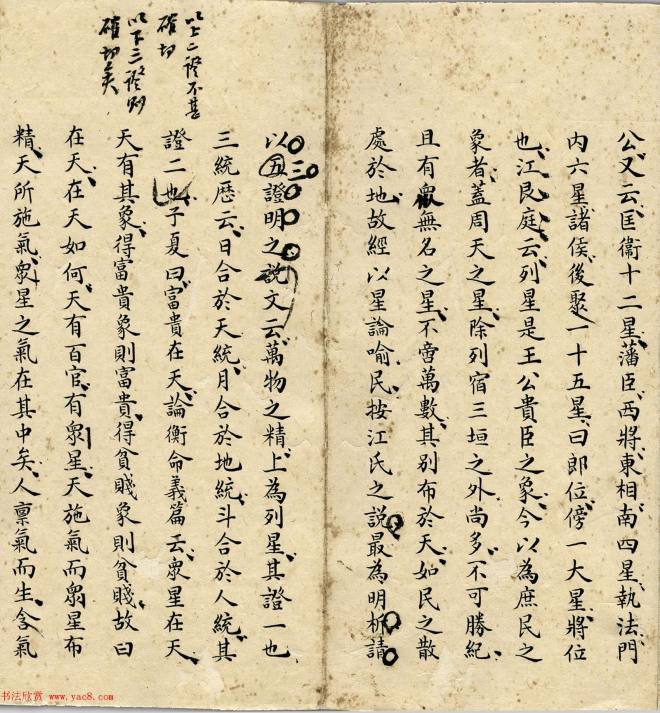 公又云匡衞十二星藩臣西將東相南四星執法門
內六星諸侯後聚一十五星曰郎位傍一大星將位
也江艮庭云列星是王公貴臣之象今以為庶民之
象者蓋周天之星除列宿三垣之外尚多不可勝紀
且有衆無名之星不啻萬數其別布於天如民之散
處於地故經以星喻民按江氏之説最為明析請
以上二證不甚
確切
以下三證則
確切矣
以五證明之説文云萬物之精上為列星其證一也
三統歴云日合於天統月合於地統斗合於人統其
證二也子夏曰富貴在天論衡命義篇云衆星在天
天有其象得富貴象則富貴得貧賤象則貧賤故曰
在天在天如何天有百官有衆星天施氣而衆星布
精天所施氣衆星之氣在其中矣人禀氣而生含氣
书法欣赏 www.yac8.com